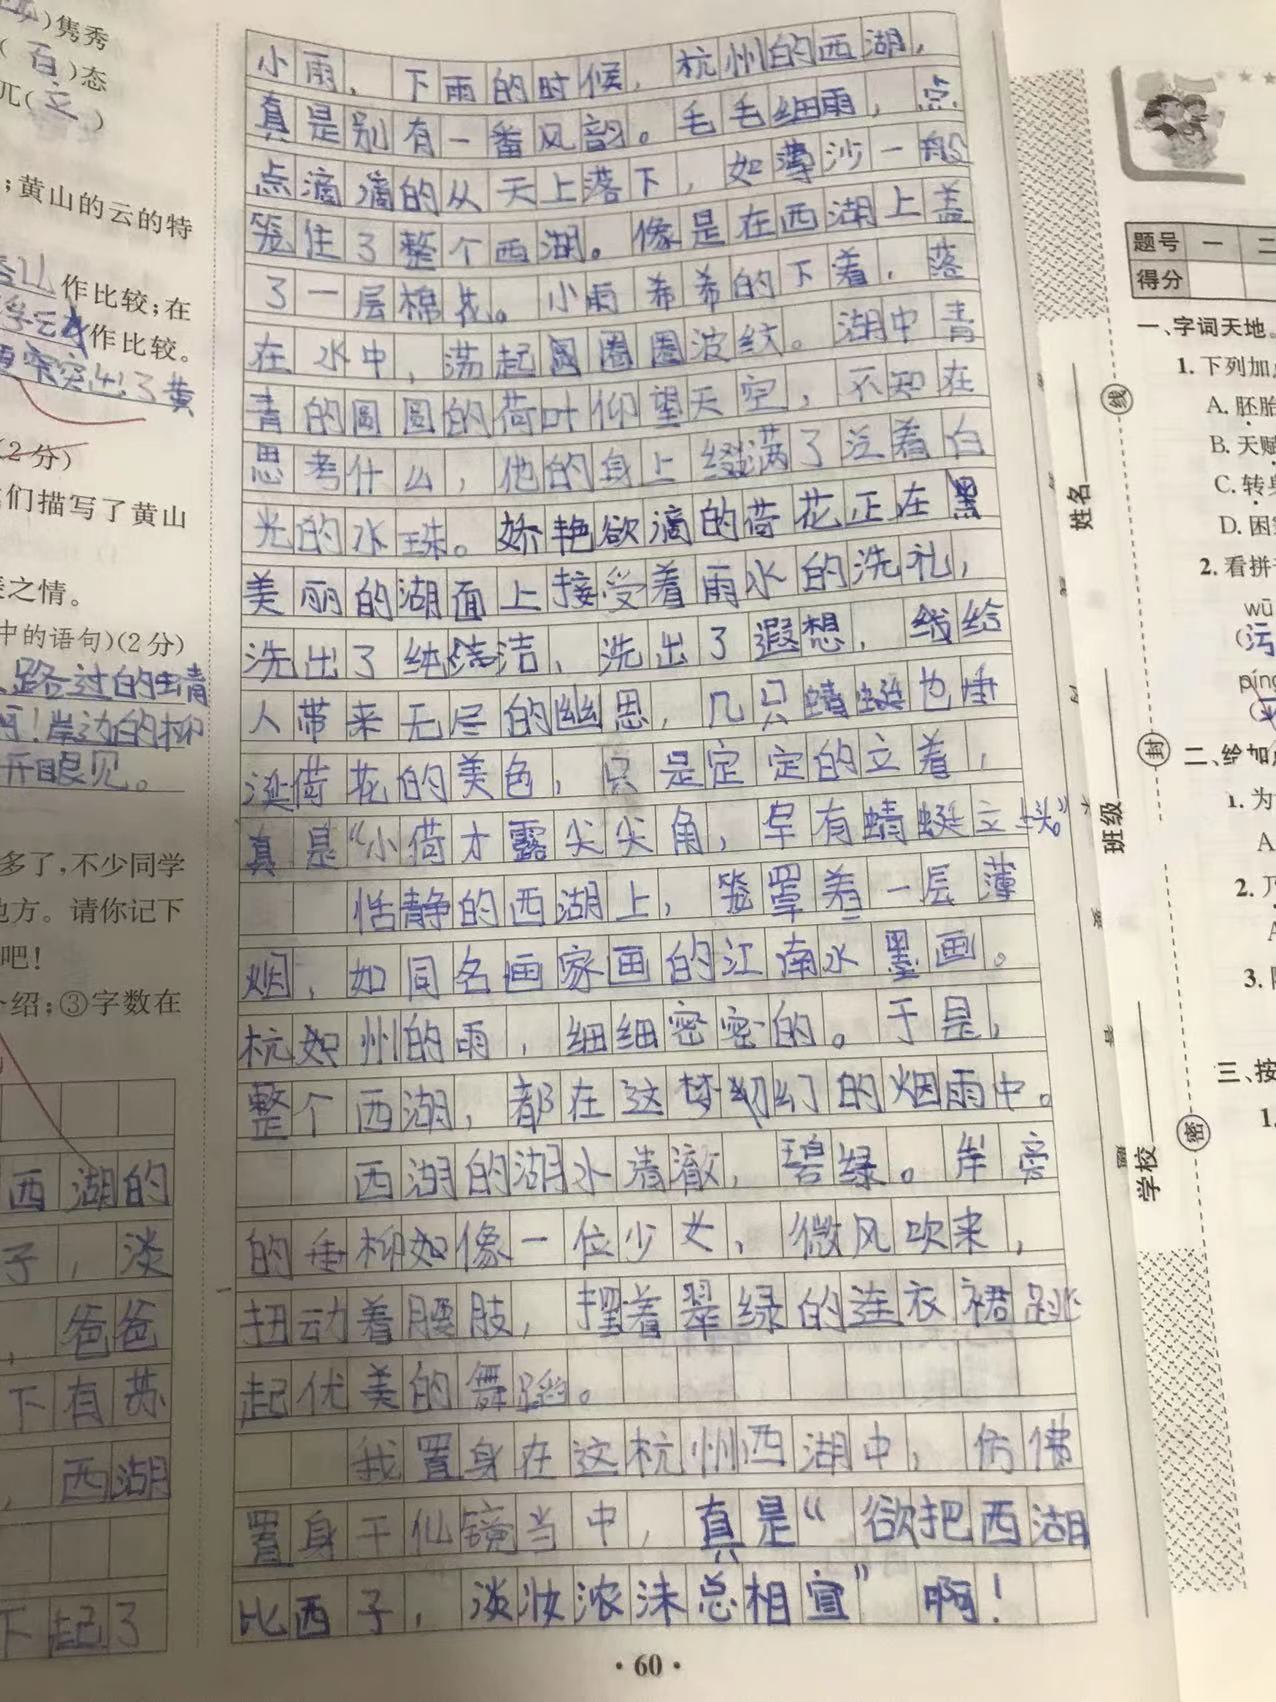 )隽秀
(百)态
兀(立)
;黄山的云的特
作比较;在
作比较。
突出了黄
(2分)
们描写了黄山
之情。
中的语句)(2分)
路过的蜻
啊!岸边的柳
开眼见。
多了,不少同学
地方。请你记下
吧!
绍;③字数在
西湖的
子,淡
,爸爸
下有苏
,西湖
下起了
小雨,下雨的时候,杭州的西湖,
真是别有一番风韵。毛毛细雨,点
点滴滴的从天上落下,如薄沙一般
笼住了整个西湖。像是在西湖上盖
了一层棉花。小雨希希的下着,落
在水中,荡起圈圈波纹。湖中青
青的圆圆的荷叶仰望天空,不知在
思考什么,他的身上缀满了泛着白
光的水珠。娇艳欲滴的荷花正在
美丽的湖面上接受着雨水的洗礼,
洗出了纯洁,洗出了遐想,给
人带来无尽的幽思,几只蜻蜓也垂
涎荷花的美色,只是定定的立着,
真是“小荷才露尖尖角,早有蜻蜓立上头。”
恬静的西湖上,笼罩着一层薄
烟,如同名画家画的江南水墨画。
杭州的雨,细细密密的。于是,
整个西湖,都在这梦幻的烟雨中。
西湖的湖水清澈,碧绿。岸旁
的垂柳如像一位少女,微风吹来,
扭动着腰肢,摆着翠绿的连衣裙跳
起优美的舞蹈。
我置身在这杭州西湖中,仿佛
置身于仙镜当中,真是“欲把西湖
比西子,淡妆浓沫总相宜”啊!
·60·
线
封
密
姓名
班级
学校
题号 一 二
得分
一、字词天地。
1.下列加
A.胚胎
B.天赋
C.转
D.困
2.看拼
wū
(污
pín
二、给加
1.为
A
2.
3.
三、按
1.